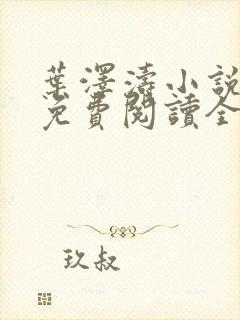 葉澤濤小說
免費閱讀全
玖叔